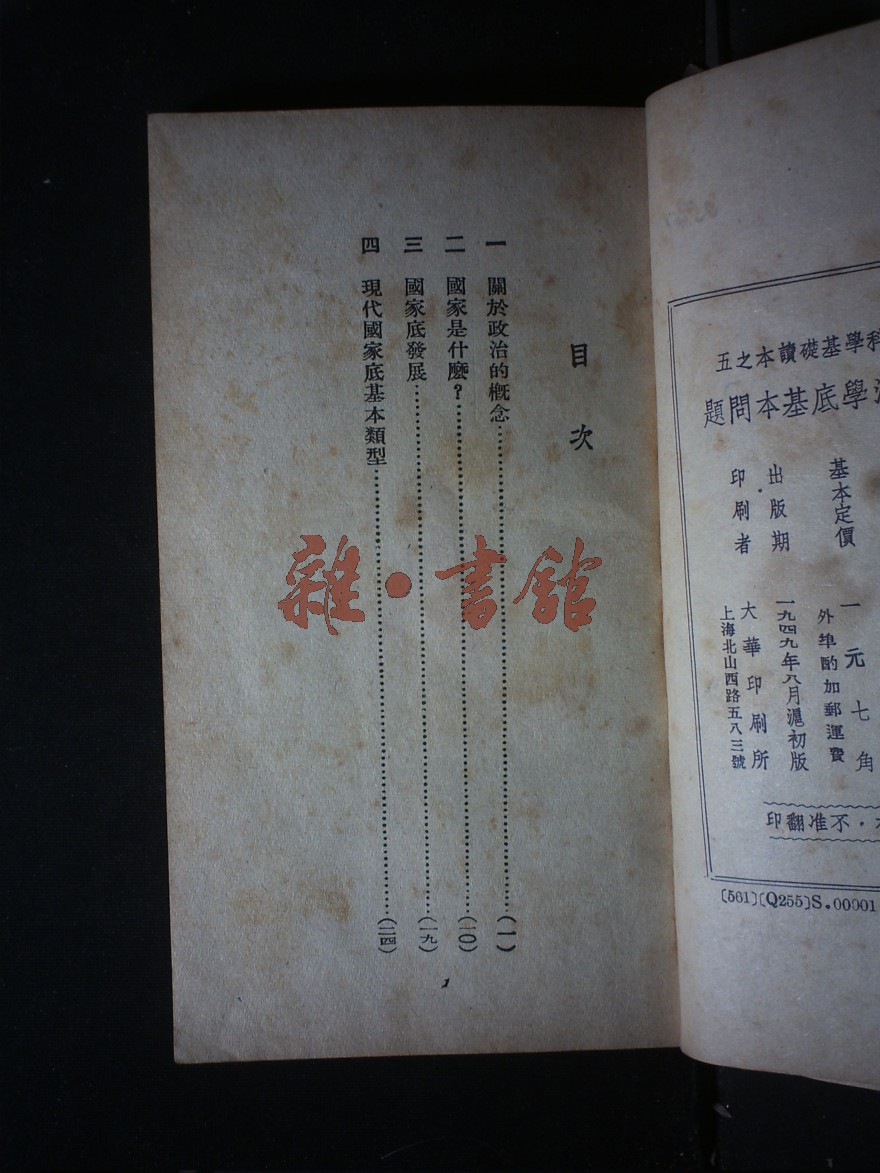 科學基礎讀本之五
學底基本問題
基本定價 一元七角
外埠酌加郵運費
出版期 一九四九年八月滬初版
印刷者 大華印刷所
上海北山西路五八三號
不准翻印
〔561〕〔Q255〕S.00001
目次
一 關於政治的概念……(一)
二 國家是什麼?……(一〇)
三 國家底發展……(一九)
四 現代國家底基本類型……(二四)
1
雜·書館